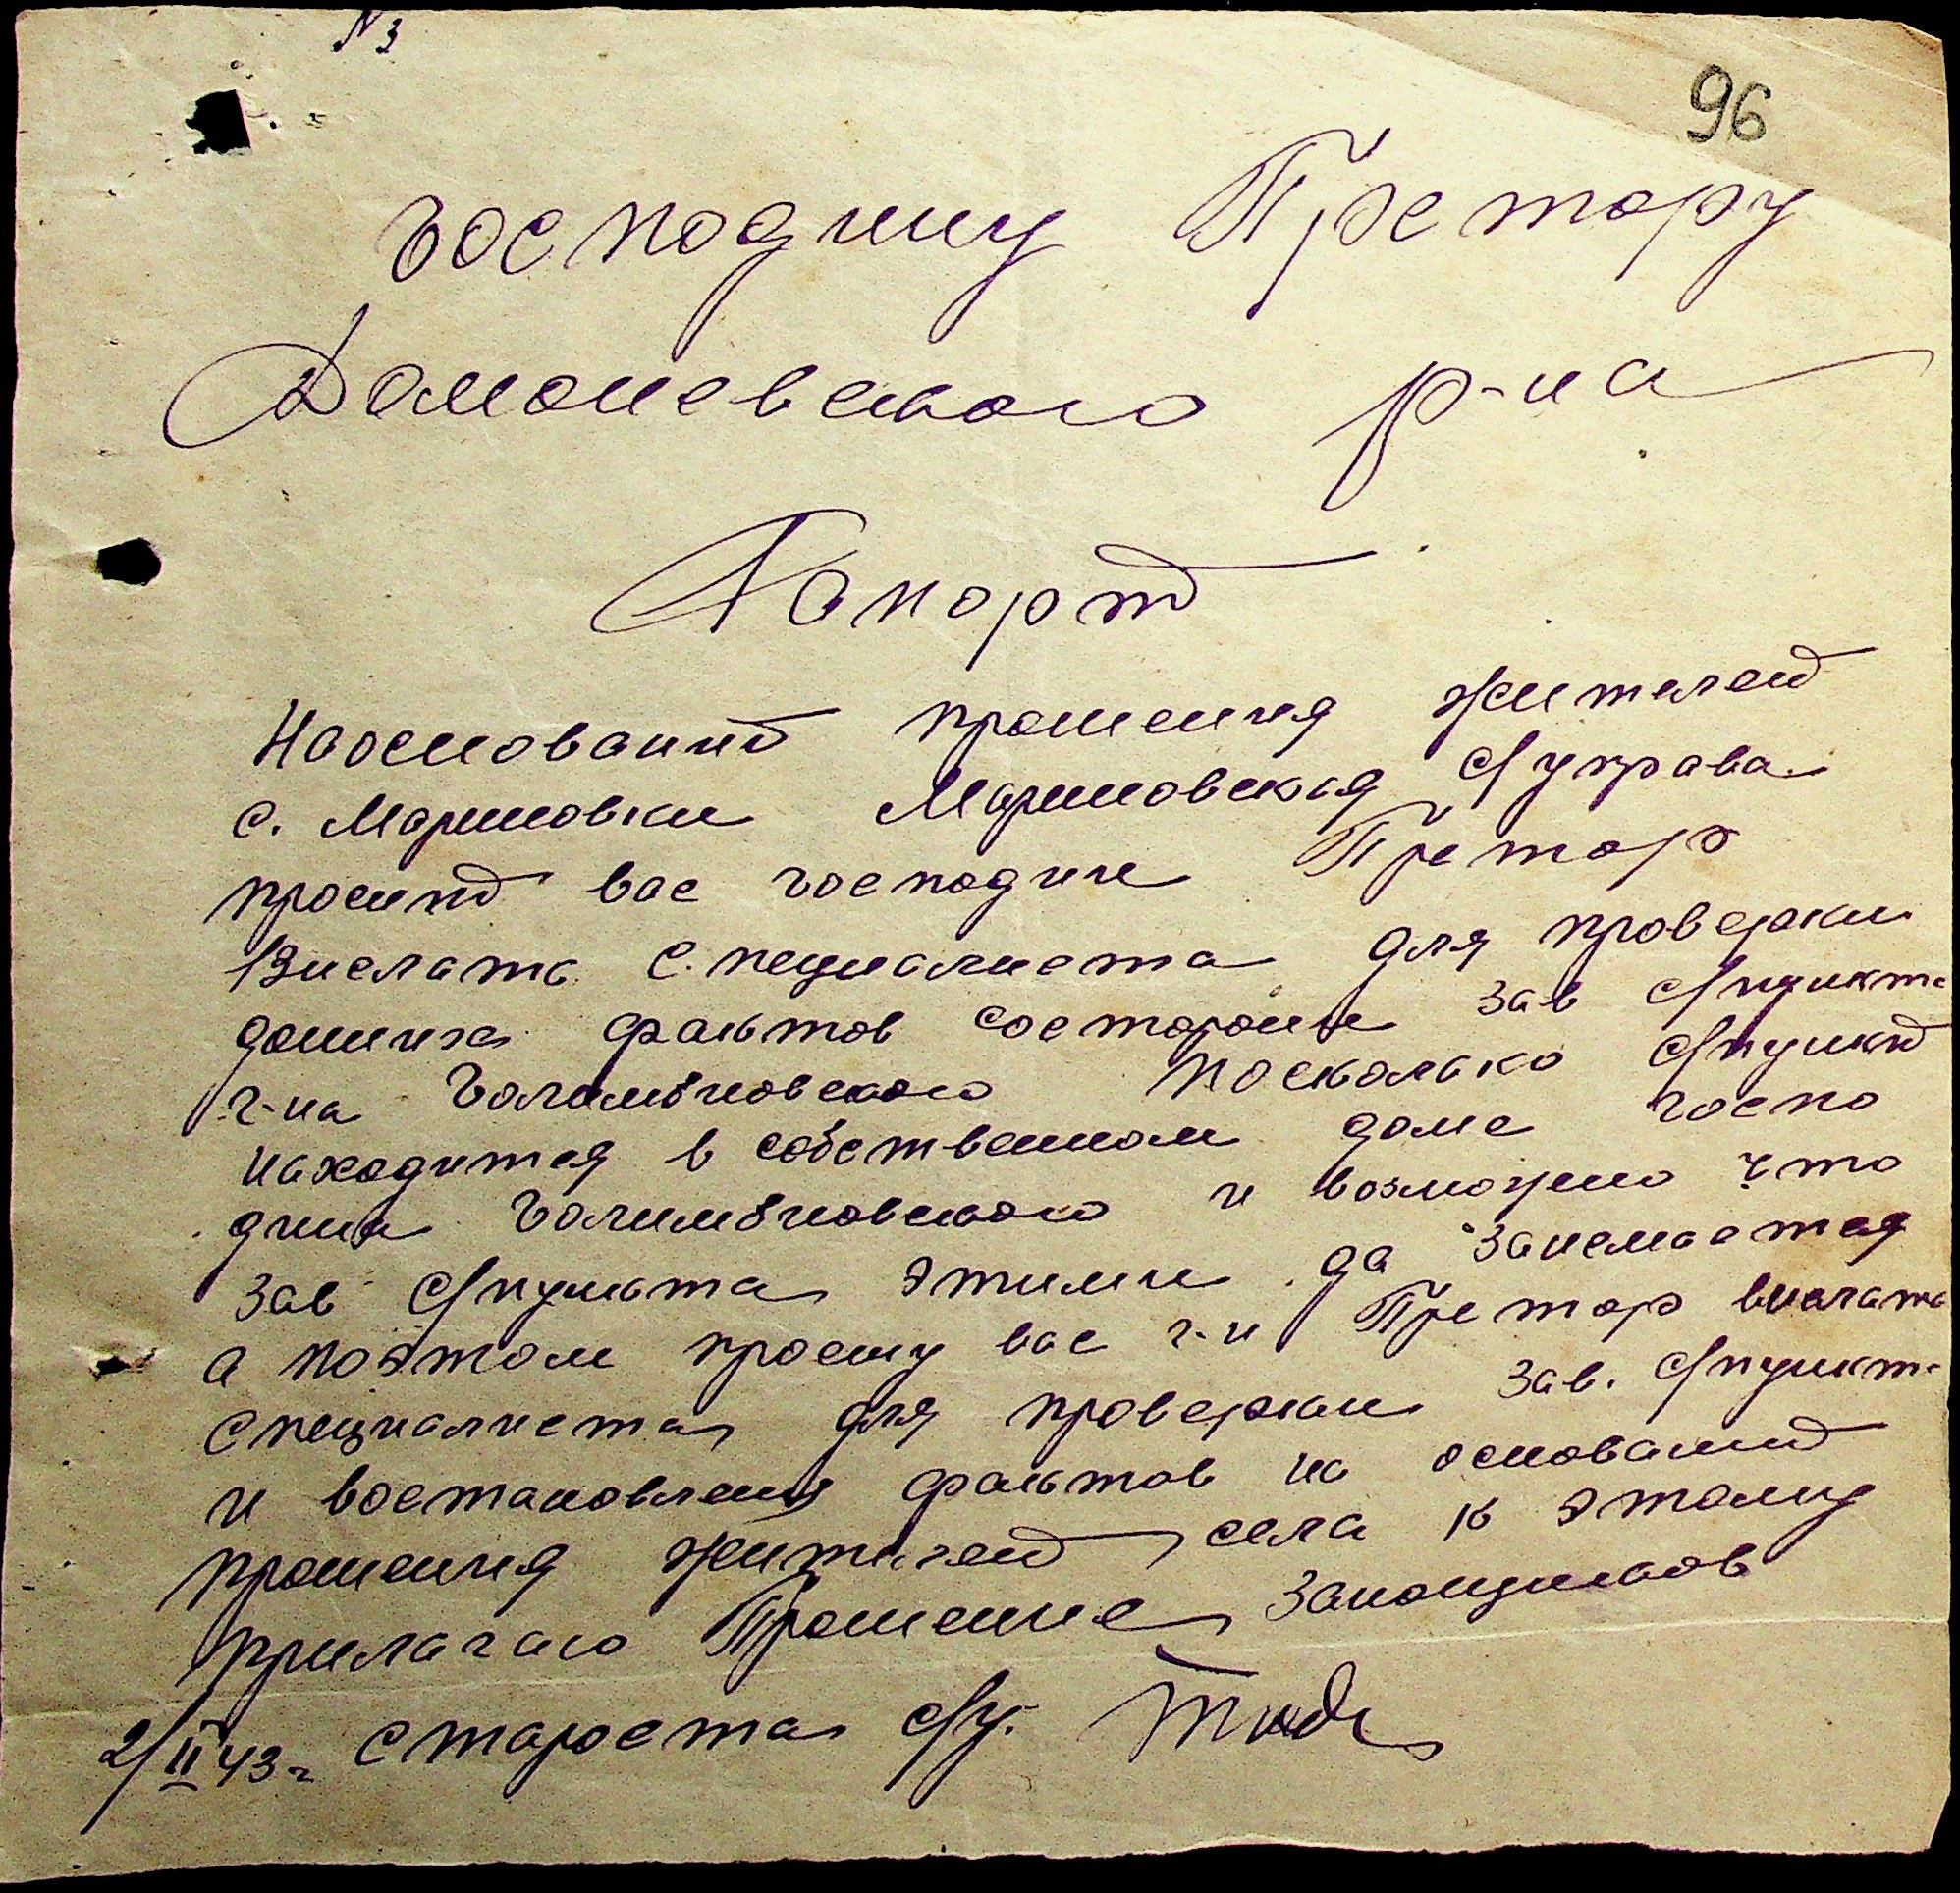 N 3
96
Господину Претору
Доманевского р-на
Рапорт
Наоснований прошения жителей
с. Мариновки Мариновская с/управа
просит вас господин Претор
Вислать специалиста для проверки
данних фактов состороны зав с/пункт
г-на Голимбиовского посколько с/пункт
находится в собственном доме госпо
дина Голимбиовского и возможно что
зав с/пункта этими да занемается
а поэтом прошу вас г-н Претор вислать
специалиста для проверки зав. с/пункт
и востановления фактов на оснований
прошения жителей села к этому
прилагаю Прошение
2/II 43 г староста с/у.